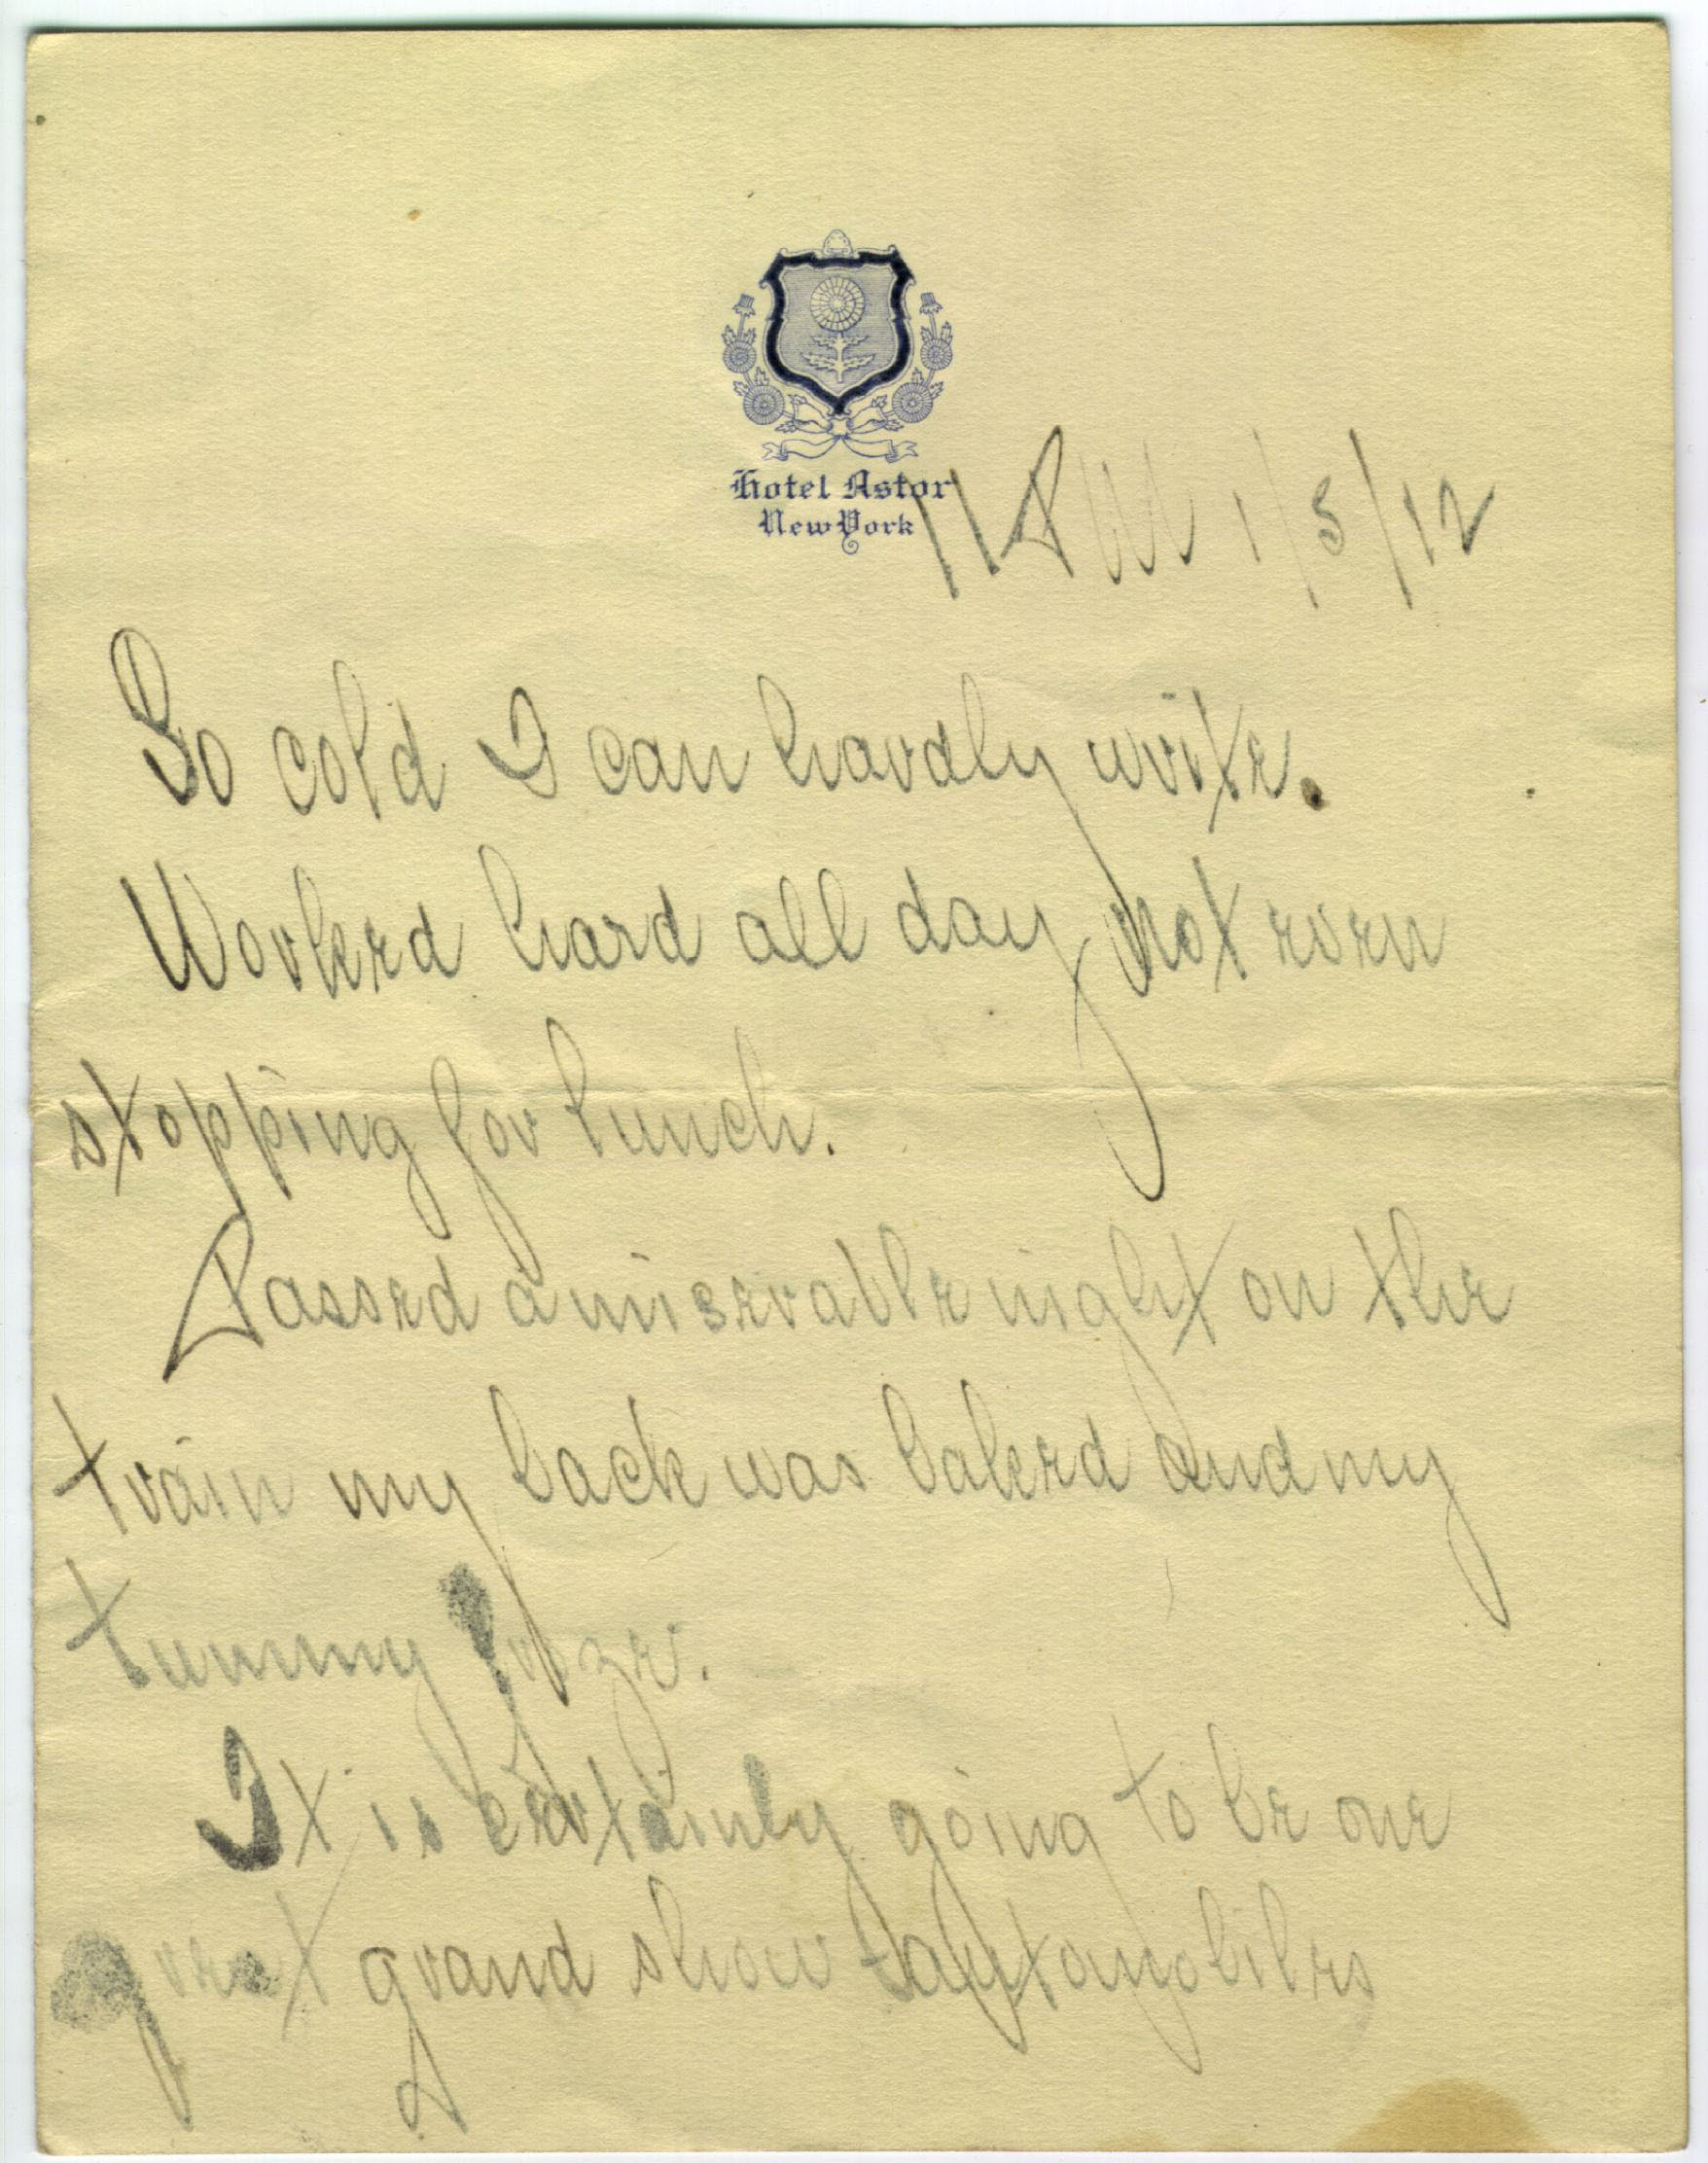 Hotel Astor
New York
11 PM 1/5/12
So cold I can hardly write.
Worked hard all day not even
stopping for lunch.
Passed a miserable night on the
train my back was baked and my
tummy froze.
It is certainly going to be one
great grand show